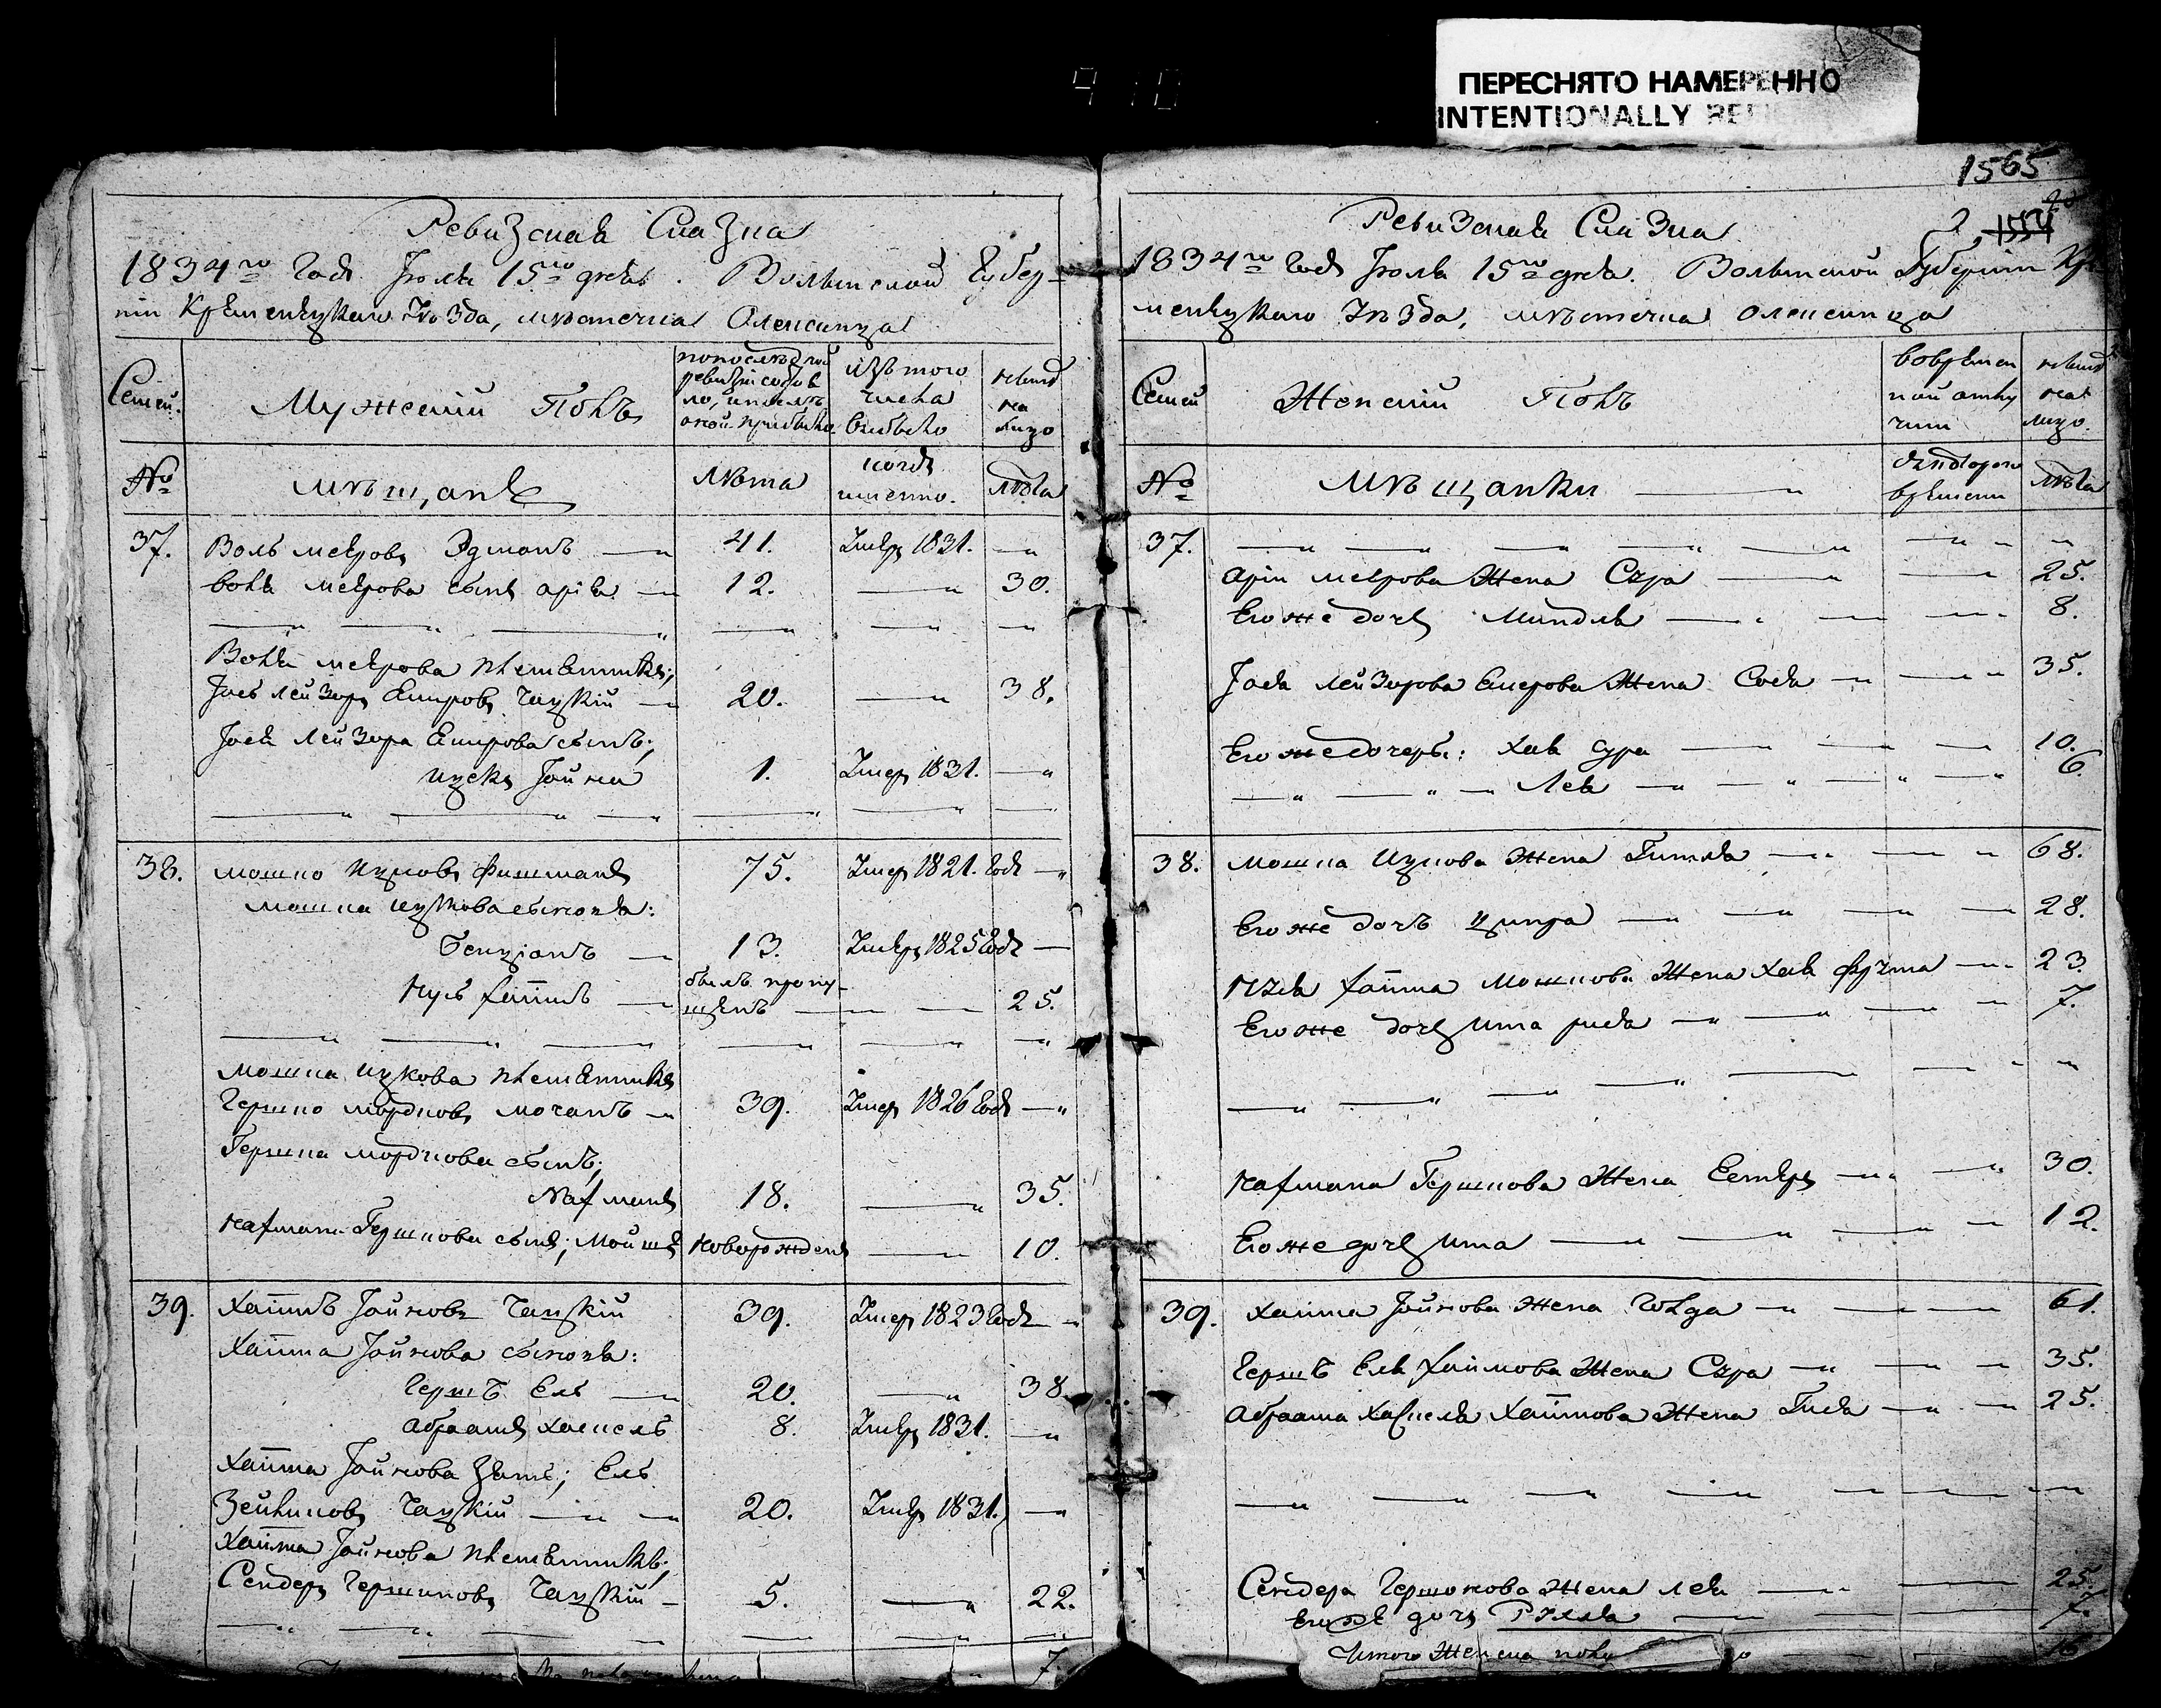 ПЕРЕСНЯТО НАМЕРЕННО
INTENTIONALLY
1565
Ревизская Сказка
1834го Года Июля 15го дня. Волынской Губер-
ніи Кременецкаго Уѣзда, мѣстечка Олексинца
Семьи
Мужескій Полъ
изъ того числа выбыло
ныне на лицо
№
мѣщане
Лѣта
когда именно.
Лѣта
37.
Воль мееровъ Эдманъ 41. Умеръ 1831.
Воля меерова сынъ арія 12. 30.
Волка меерова племянникъ;
Іось Лейзоръ Емировъ Чацкій 20. 38.
Іося Лейзора Емирова сынъ;
ицекъ Іойна 1. Умеръ 1831.
38. мошко ицковъ фишманъ 75. Умеръ 1821. Года
мошка ицкова сыновья:
бенціонъ 13. Умеръ 1825 Года
Кусь хаимъ былъ пропу-
щенъ 25.
мошка ицкова племянникъ
Гершко мордковъ мочанъ 39. Умеръ 1826 Года
Гершка мордкова сынъ;
Нахманъ 18. 35.
Нахмана Гершкова сынъ; Мойше новорожденъ 10.
39. Хаимъ Іойновъ Чацкій 39. Умеръ 1823 Года
Хаима Іойнова сыновья:
Гершъ Ель 20. 38
абраамъ хаскель 8. Умеръ 1831.
Хаима Іойнова зять; Ель
Чацкій 20. Умеръ 1831.
Хаима Іойнова племянникъ;
Сендеръ Гершковъ Чацкій 5. 22.
7.
Ревизская Сказка
1834го Года Июля 15го дня. Волынской Губерніи Кре-
менецкаго Уѣзда, мѣстечка Олексинца
Семьи
Женскій Полъ
во временной отлучки
ныне на лицо.
№
Мѣщанки
съ котораго времени
Лѣта
37.
арія меерова Жена Сура 25.
Его же дочь Миндля 8.
Іося Лейзорова Емерова Жена Сося 35.
Его же дочеры: хая сура 10.
Лея 6.
38. мошка Ицкова Жена Гитля 68.
Его же дочь ципра 28.
Куся хаима Мошкова Жена хая фрума 23.
Его же дочь Ита рися 7.
Нахмана Гершкова Жена Естеръ 30.
Его же дочь ита 12.
39. хаима Іойнова Жена Голда 61.
Гершъ Еля хаимова Жена Сура 35.
абраама хаскеля хаимова Жена Гися 25.
Сендера Гершкова Жена Лея 25.
Его же дочь Рухля 7.
Итого Женска полу 16